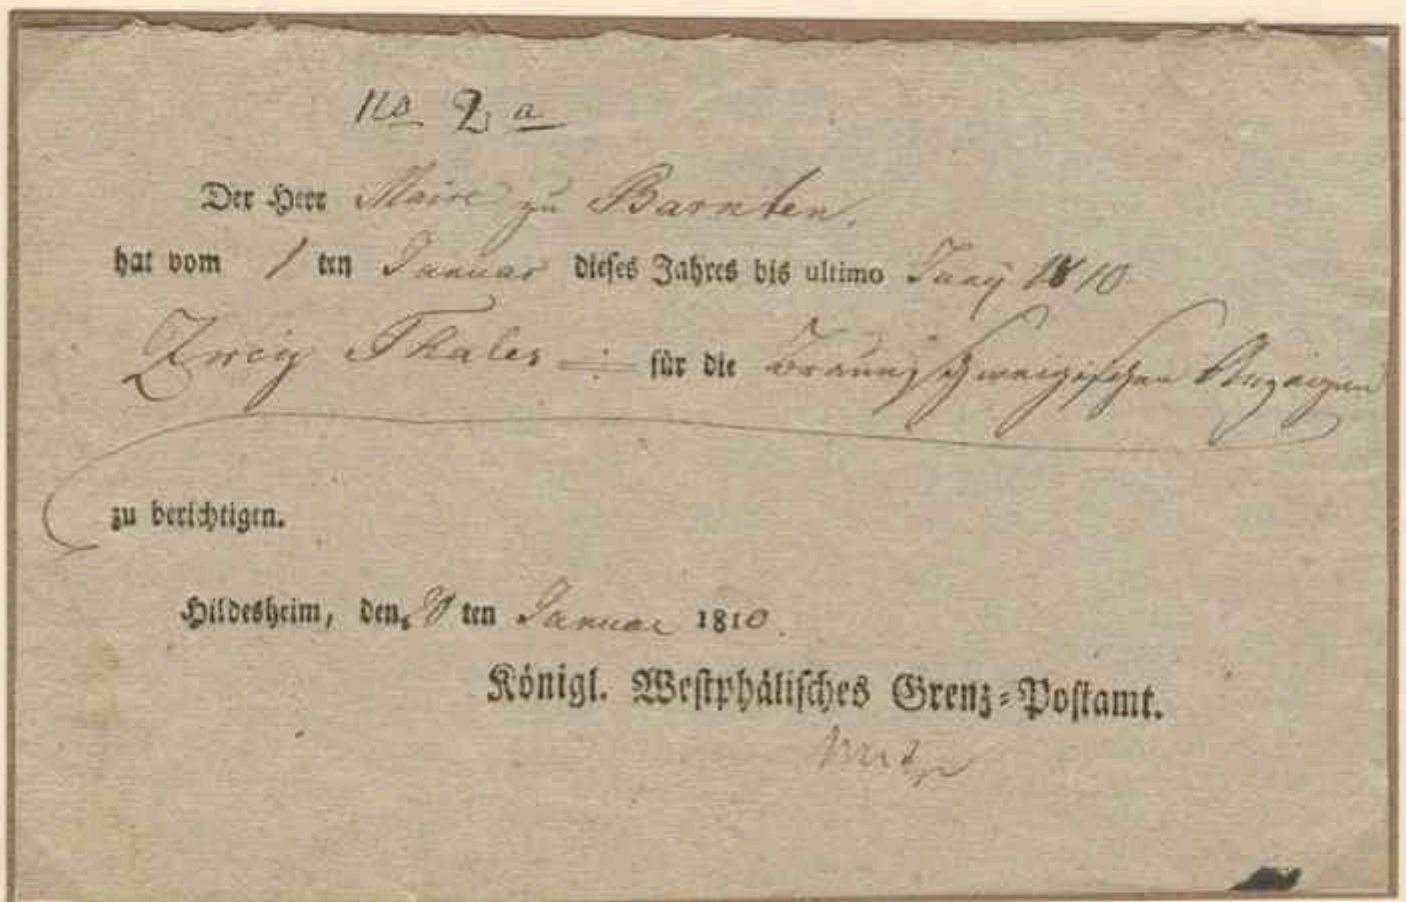 No 2 a
Der Herr Maire zu Barnten.
hat vom 1 ten Januar dieses Jahres bis ultimo Juny 1810
Zwey Thaler für die Braunschweigischen Anzeigen
zu berichtigen.
Hildesheim, den ten Januar 1810.
Königl. Westphälisches Grenz-Postamt.